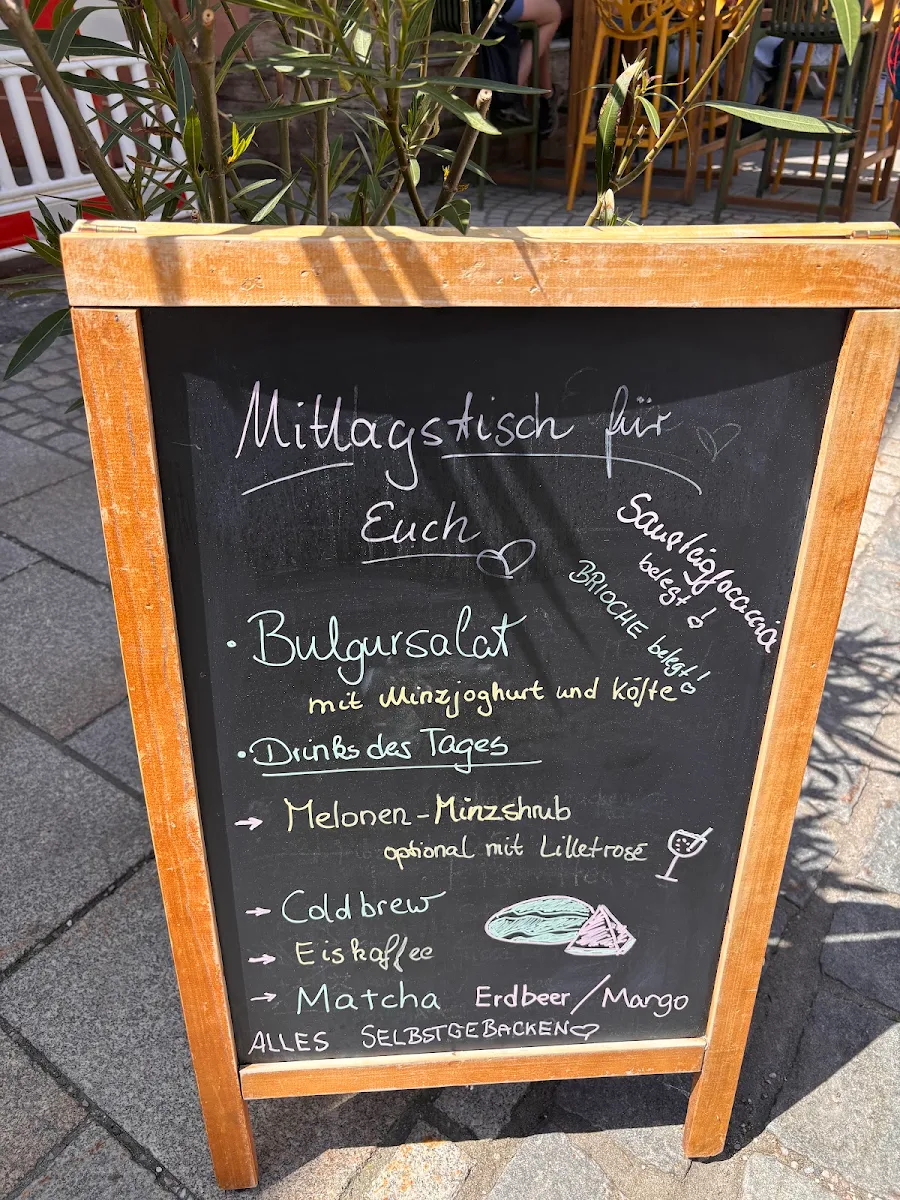 Mittagstisch für
Euch
Sauerteigfocaccia
belegt!
BRIOCHE belegt!
• Bulgursalat
mit Minzjoghurt und Köfte
• Drinks des Tages
→ Melonen-Minzshrub
optional mit Lilletrosé
→ Coldbrew
→ Eiskaffee
→ Matcha Erdbeer/Mango
ALLES SELBSTGEBACKEN